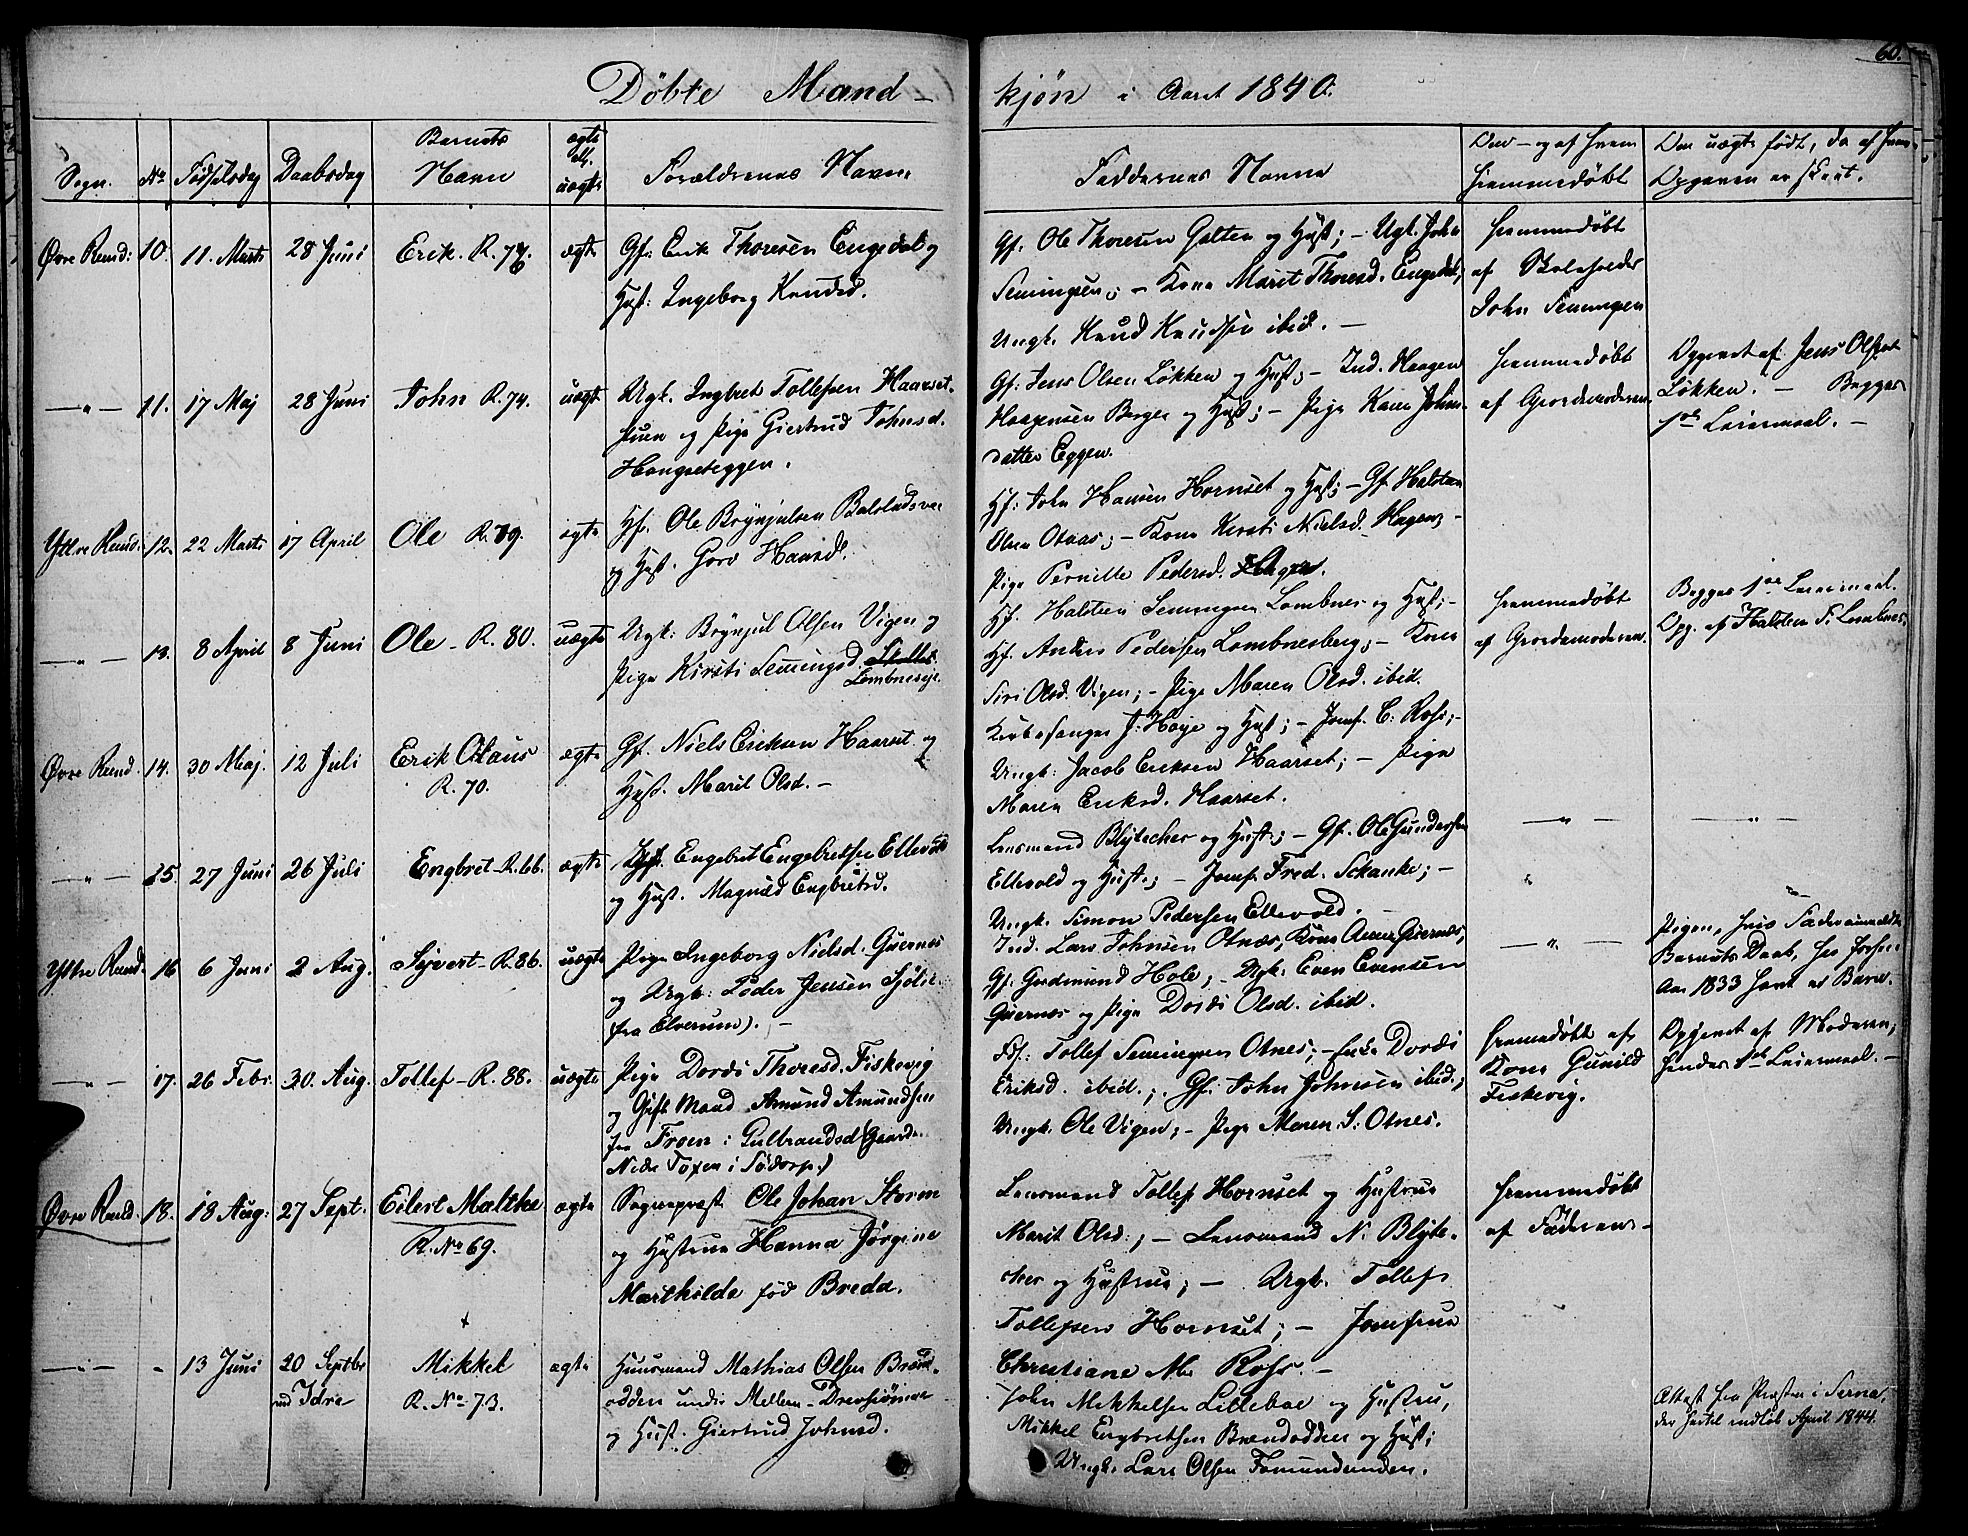 60.
Döbte Mand-
kjøn i Aaret 1840.
Sogn.
No
Fødselsdag
Daabsdag
Barnets
Navn
ægte
ell.
uægte
Forældrenes Navne
Faddernes Navne
Om - og af hvem
hjemmedøbt
Om uægte født, da af hvem
Opgaven er skeet.
Øvre Rend: 10. 11. Marts 28 Juni Erik. R. 76. ægt
Gf. Erik Thoresen Engedal og
Hust: Ingeborg Knudsd.
Gf. Ole Thoresen Galten og Hust; - Ugk. John
Semingsen; - Kone Marit Thoresd. Engedal;
Ungk. Knud Knudsen ibid. -
hjemmedøbt
af Skoleholder
John Semingsen
-"- 11. 17 Maj 28 Juni John R. 74. uægt
Ugk. Ingbret Tollefsen Haarset-
og Pige Giertrud Johnsd.
Haugseteggen.
Gf: Jens Olsen Løkken og Hust; - Ind. Haagen
Haagensen Berger og Hust; - Pige Karen Johns-
datter Eggen.
hjemmedøbt
af Gjordemoderen
Opgivet af Jens Olsen
Løkken. - Begges
1ste Leiermaal. -
Yttre Rend. 12. 22 Marts 17 April Ole R. 79. ægte
Hf. Ole Brynjulsen
og Hust. Goro Hansd.
Hf: John Hansen Hornset og Hust; - Gf Halsten
Olsen Otnas; - Kone Kersti Nielsd. Hagen; -
Pige Pernille Pedersd.
-"- 13. 8 April 8 Juni Ole - R. 80. uægte
Ugk: Brynjul Olsen Vigen og
Pige Kirsti Semingsd.
Lombneseje.
Hf. Halsten Semingsen Lombnes og Hust; -
Hf. Anders Pedersen Lombnesberg; - Kone
Siri Olsd. Vigen; - Pige Maren Olsd. ibid.
hjemmedøbt
af Gjordemoderen.
Begges 1ste Leiermaal.
Opg. af Halsten S. Lombnes.
Øvre Rend. 14. 30 Maj. 12 Juli Erik Olaus ægte
R. 70.
Gf. Niels Eriksen Haarset og
Hust. Marit Olsd. -
Kirkesanger J. Høye og Hust; - Jomf. C. Ross; -
Ungk: Jacob Eriksen Haarset; - Pige
Maren Eriksd. Haarset.
-"- 15. 27 Juni 26 Juli Engbret - R. 66. ægte
Engebret Engebretsen Ellevold
og Hust. Magnild Engbretsd.
Lensmand Blytecher og Hust; - Gf. Ole Gundersen
Ellevold og Hust.; - Jomf. Fred. Schanke; -
Ungk. Simon Pedersen Ellevold.
-"-
-"-
Yttre Rend. 16 6 Juni 2 Aug. Sejvert - R. 86. uægte
Pige Ingeborg Nielsd. Qvernes
og Ugk: Peder Jensen Sjølie
(fra Elverum). -
Ind. Lars Johnsen Otnæs, Kone Anne Qvernes,
Gf. Gudmund Hole; - Ugk. Even Evensen
Qvernes og Pige Dordi Olsd. ibid.
-"-
Pigen, hvis Fader anmeldte
Barnets Daab,
Aar 1833 havt et Barn.
-"- 17. 26 Febr. 30. Aug. Tollef - R. 88. uægte
Pige Dordi Thoresd. Fiskevig
og Gift Mand Amund Amundsen
fra Froen i Gulbrandsd (Gaard
i Sødorp.)
Tollef Semingsen Otnes; - Enke Dordi
Eriksd. ibid.; Gf. John Johnsen ibid.;
Ungk. Ole Vigen; - Pige Maren S. Otnes.
hjemmedøbt af
Kone Gunild
Fiskevig.
Opgivet af Moderen,
hendes 1ste Leiermaal. -
Øvre Rend. 18. 18 Aug: 27 Sept. Eilert Maltke ægte
R. No 69.
Sognepræst Ole Johan Storm
og Hustrue Hanna Jørgine
Marthilde fød Breda.
Lensmand Tollef Hornset og Hustrue
Marit Olsd.; - Lensmand N. Blyte-
cher og Hustrue; - Ugk. Tollef
Tollefsen Hornset; - Jomfrue
Christiane Ross. -
hjemmedøbt
af Faderen -
-"- - 13 Juni 20 Septbr Mikkel ægte
ved Idre
R. No 73.
Huusmand Mathias Olsen Brænd-
odden under Mellem-Drevsiømoe
og Hust. Giertrud Johnsd.
John Mikkelsen Lilleboe og Hustru,
Mikkel Engbretsen Brændodden og Hust;
Ungk. Lars Olsen Fæmundenden.
Attest fra Præsten i Serna,
indløb April 1844.